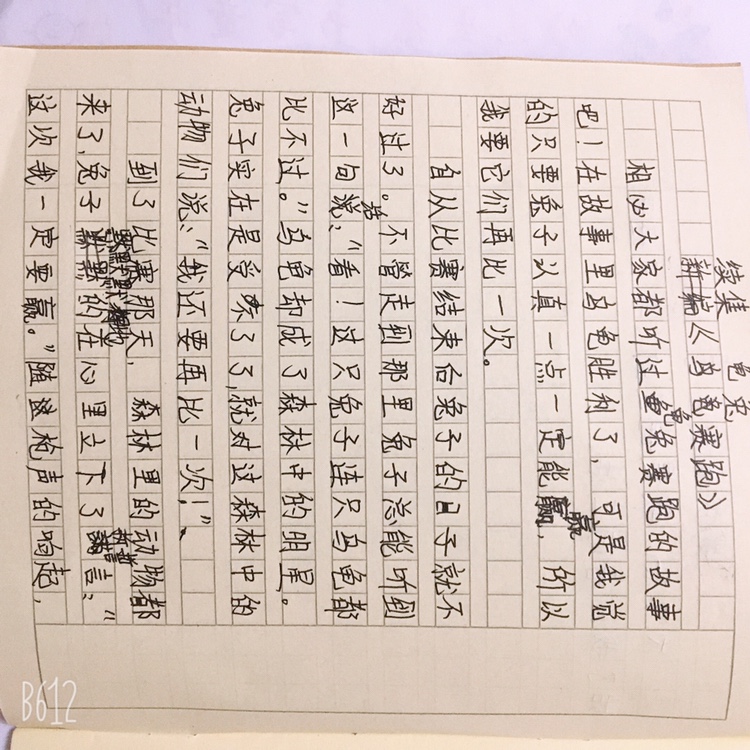 续集《龟兔赛跑》
相必大家都听过龟兔赛跑的故事
吧！在故事里乌龟胜利了，可是我觉
的只要兔子认真一点一定能赢，所以
我要它们再比一次。
自从比赛结束后兔子的日子就不
好过了。不管走到那里兔子总能听到
这一句话：“看！这只兔子连只乌龟都
比不过。”乌龟却成了森林中的明星。
兔子实在是受不了了，就对这森林中的
动物们说：“我还要再比一次！”
到了比赛那天，森林里的动物都
来了，兔子默默的在心里立下了誓言：“
这次我一定要赢。”随这枪声的响起，
B612